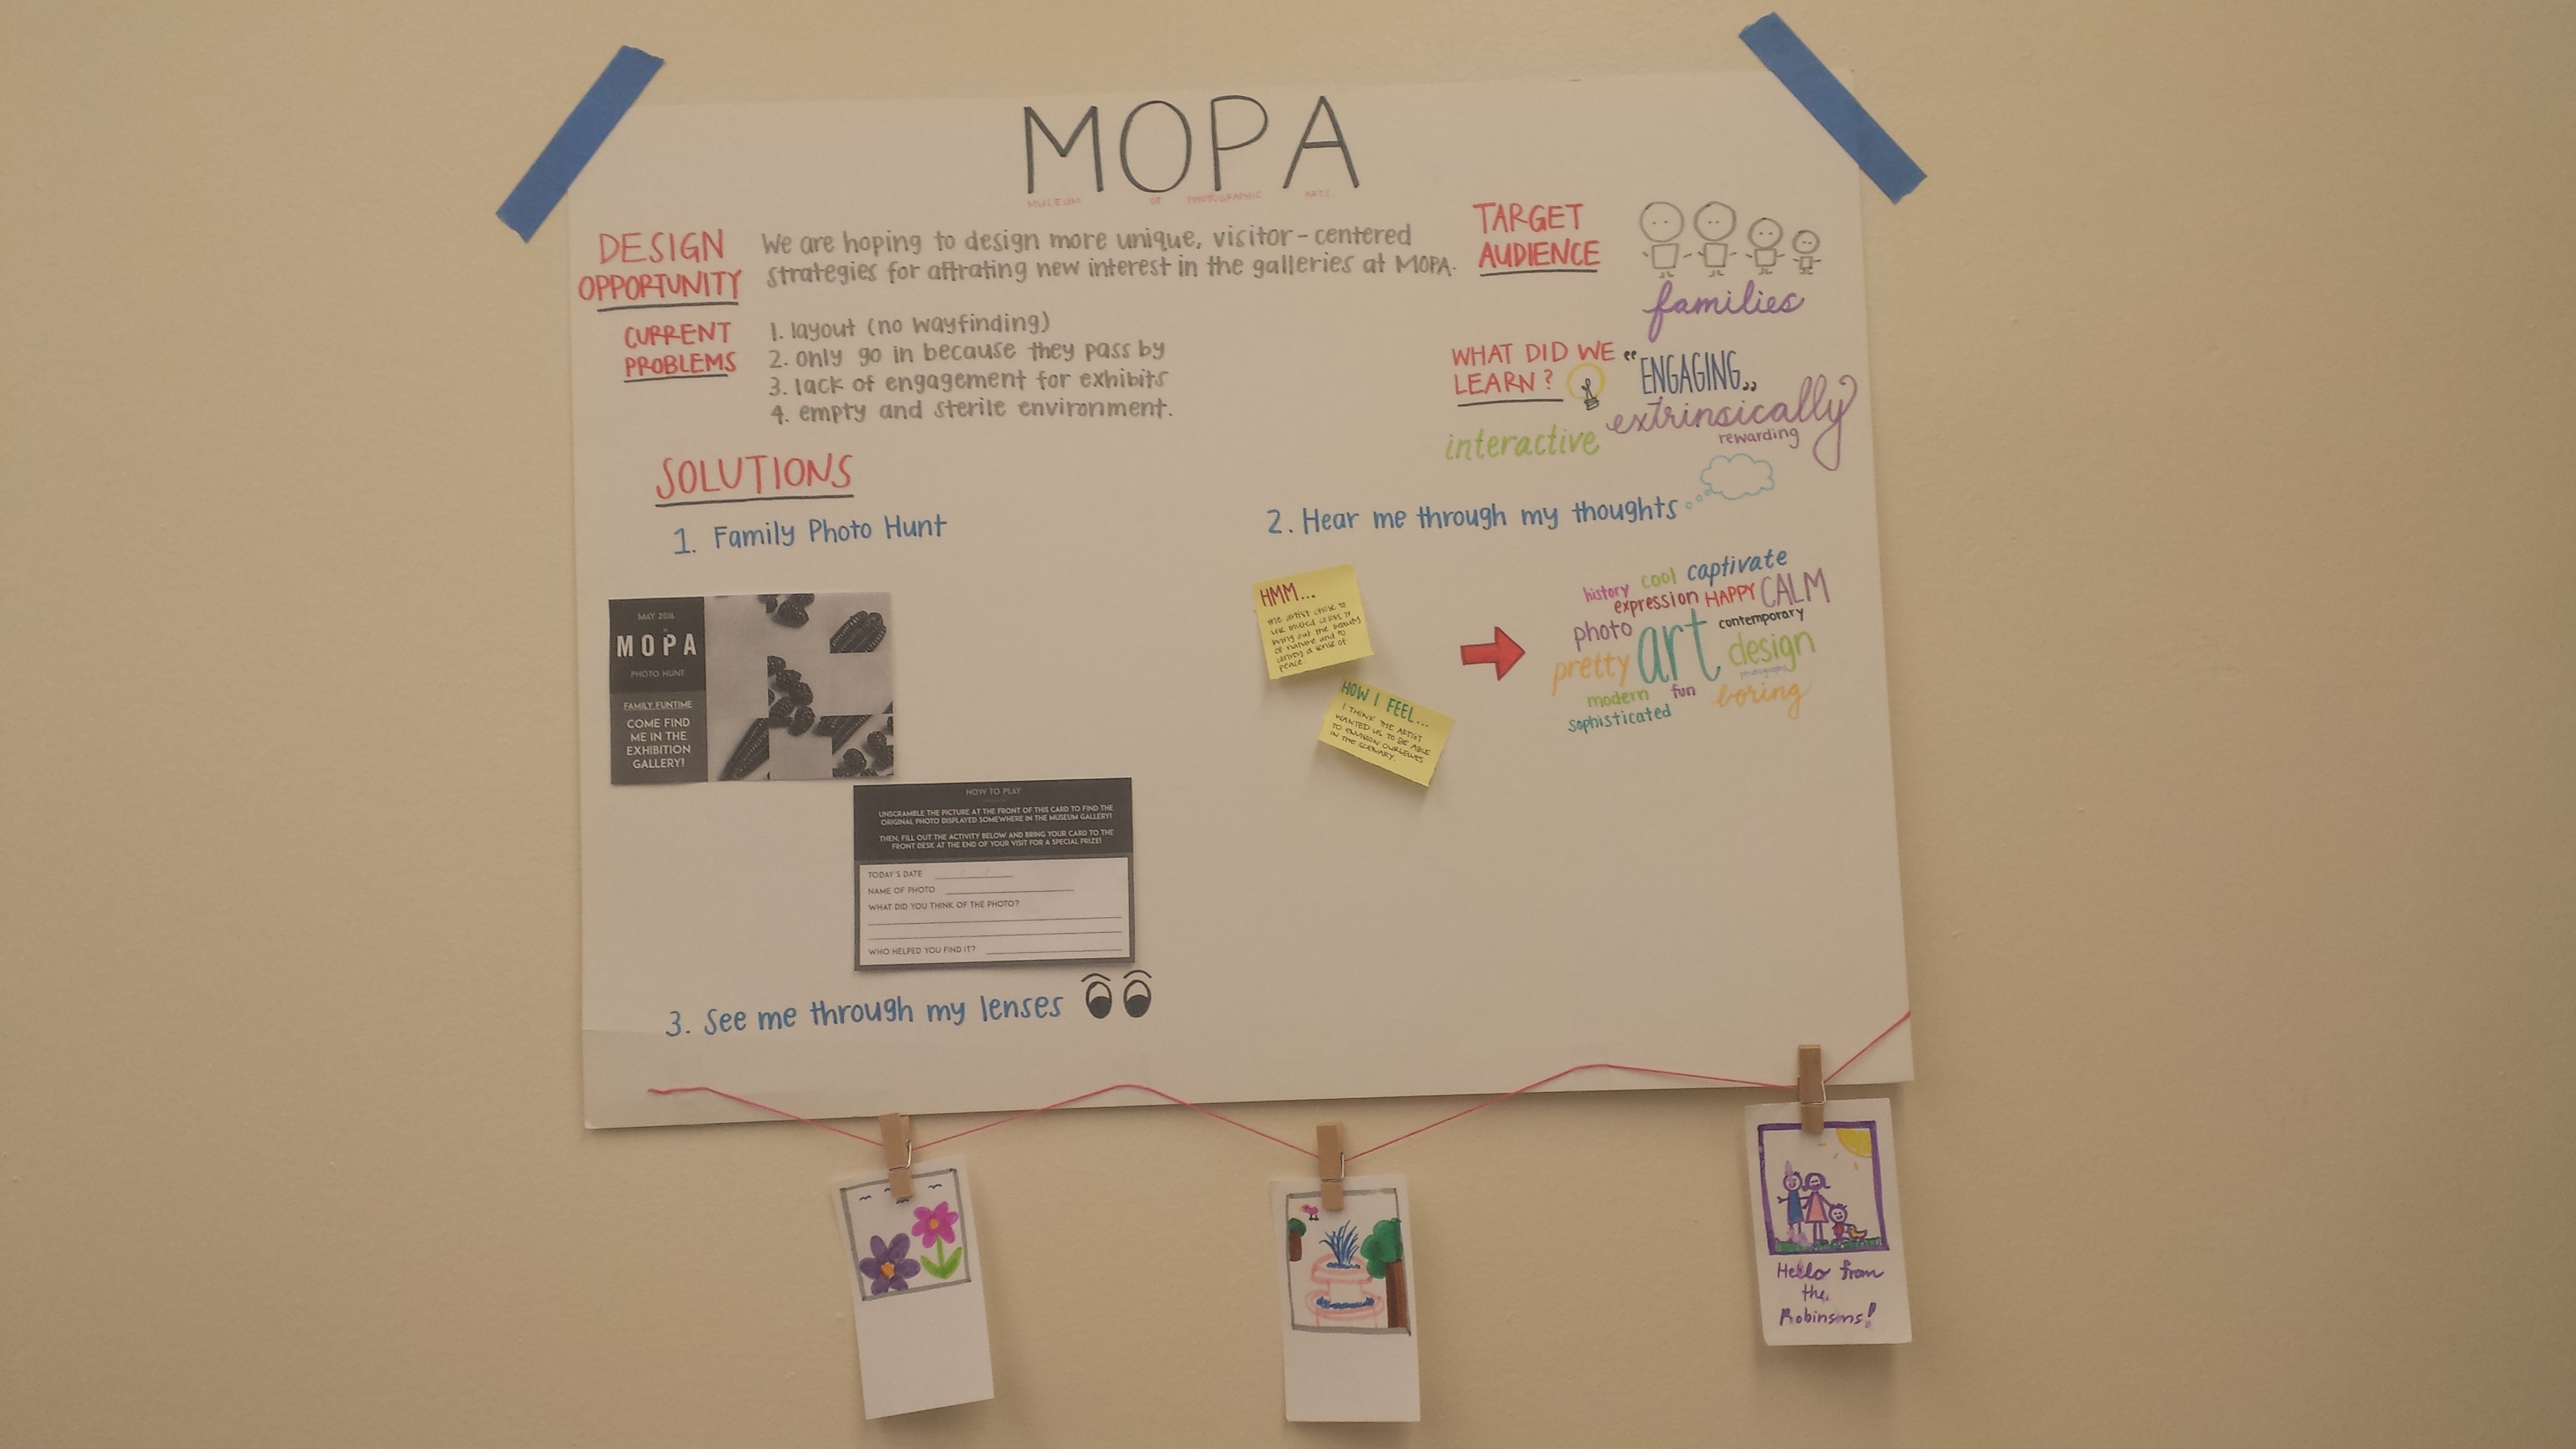 MOPA
MUSEUM OF PHOTOGRAPHIC ARTS
DESIGN
OPPORTUNITY
We are hoping to design more unique, visitor-centered
strategies for attrating new interest in the galleries at MOPA.
TARGET
AUDIENCE
families
CURRENT
PROBLEMS
1. layout (no wayfinding)
2. only go in because they pass by
3. lack of engagement for exhibits
4. empty and sterile environment.
WHAT DID WE
LEARN?
"ENGAGING"
extrinsically
rewarding
interactive
SOLUTIONS
1. Family Photo Hunt
MAY 2016
MOPA
PHOTO HUNT
FAMILY FUNTIME
COME FIND
ME IN THE
EXHIBITION
GALLERY!
HOW TO PLAY
UNSCRAMBLE THE PICTURE AT THE FRONT OF THIS CARD TO FIND THE
ORIGINAL PHOTO DISPLAYED SOMEWHERE IN THE MUSEUM GALLERY!
THEN, FILL OUT THE ACTIVITY BELOW AND BRING YOUR CARD TO THE
FRONT DESK AT THE END OF YOUR VISIT FOR A SPECIAL PRIZE!
TODAY'S DATE ____/____/____
NAME OF PHOTO
WHAT DID YOU THINK OF THE PHOTO?
WHO HELPED YOU FIND IT?
2. Hear me through my thoughts
HMM...
the artist chose to
use muted colors to
bring out the beauty
of nature and to
convey a sense of
peace
HOW I FEEL...
I THINK THE ARTIST
WANTED US TO BE ABLE
TO ENVISION OURSELVES
IN THE SCENARY.
history cool captivate
expression HAPPY CALM
photo art contemporary
pretty design
photography
modern fun boring
sophisticated
3. See me through my lenses
Hello from
the
Robinsons!